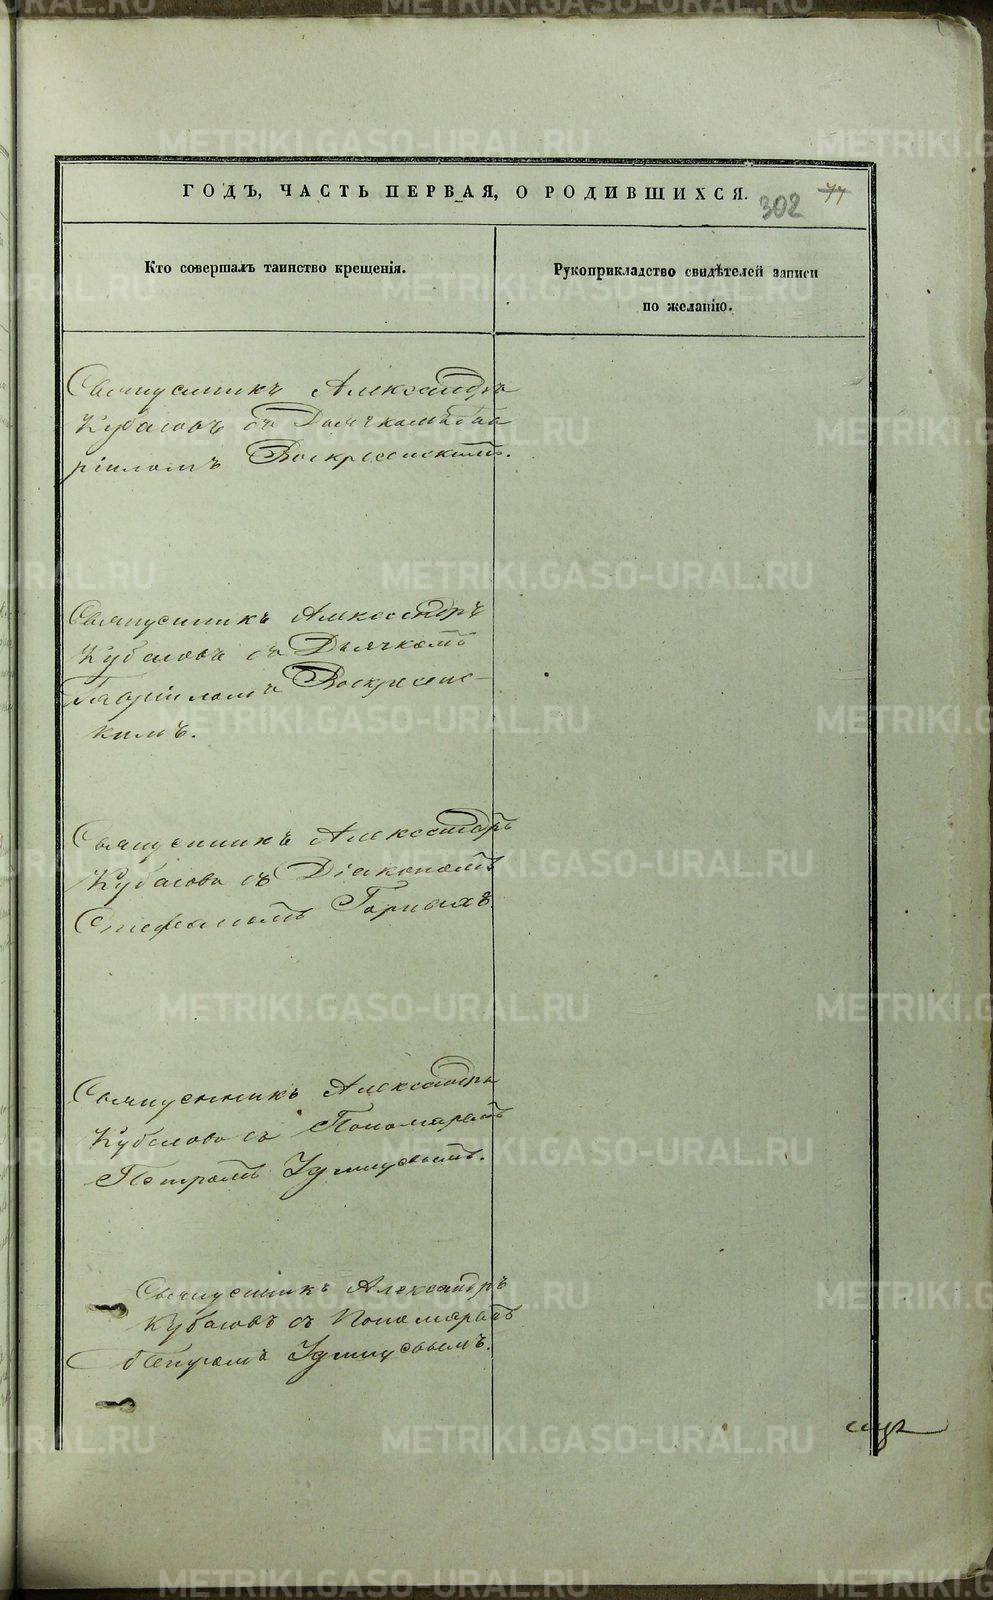 ГОДЪ, ЧАСТЬ ПЕРВАЯ, О РОДИВШИХСЯ.
302 77
Кто совершалъ таинство крещенія.
Рукоприкладство свидѣтелей записи
по желанію.
Священникъ Александръ
Кубасовъ съ Дьячкомъ Гав
ріиломъ Воскресенскимъ.
Священникъ Александръ
Кубасовъ съ Дьячкомъ
Гавріиломъ Воскресенс-
кимъ.
Священникъ Александръ
Кубасовъ съ Діакономъ
Стефаномъ Горныхъ
Священникъ Александръ
Кубасовъ съ Пономаремъ
Петромъ
Священникъ Александръ
Кубасовъ съ Пономаремъ
Петромъ
METRIKI.GASO-URAL.RU